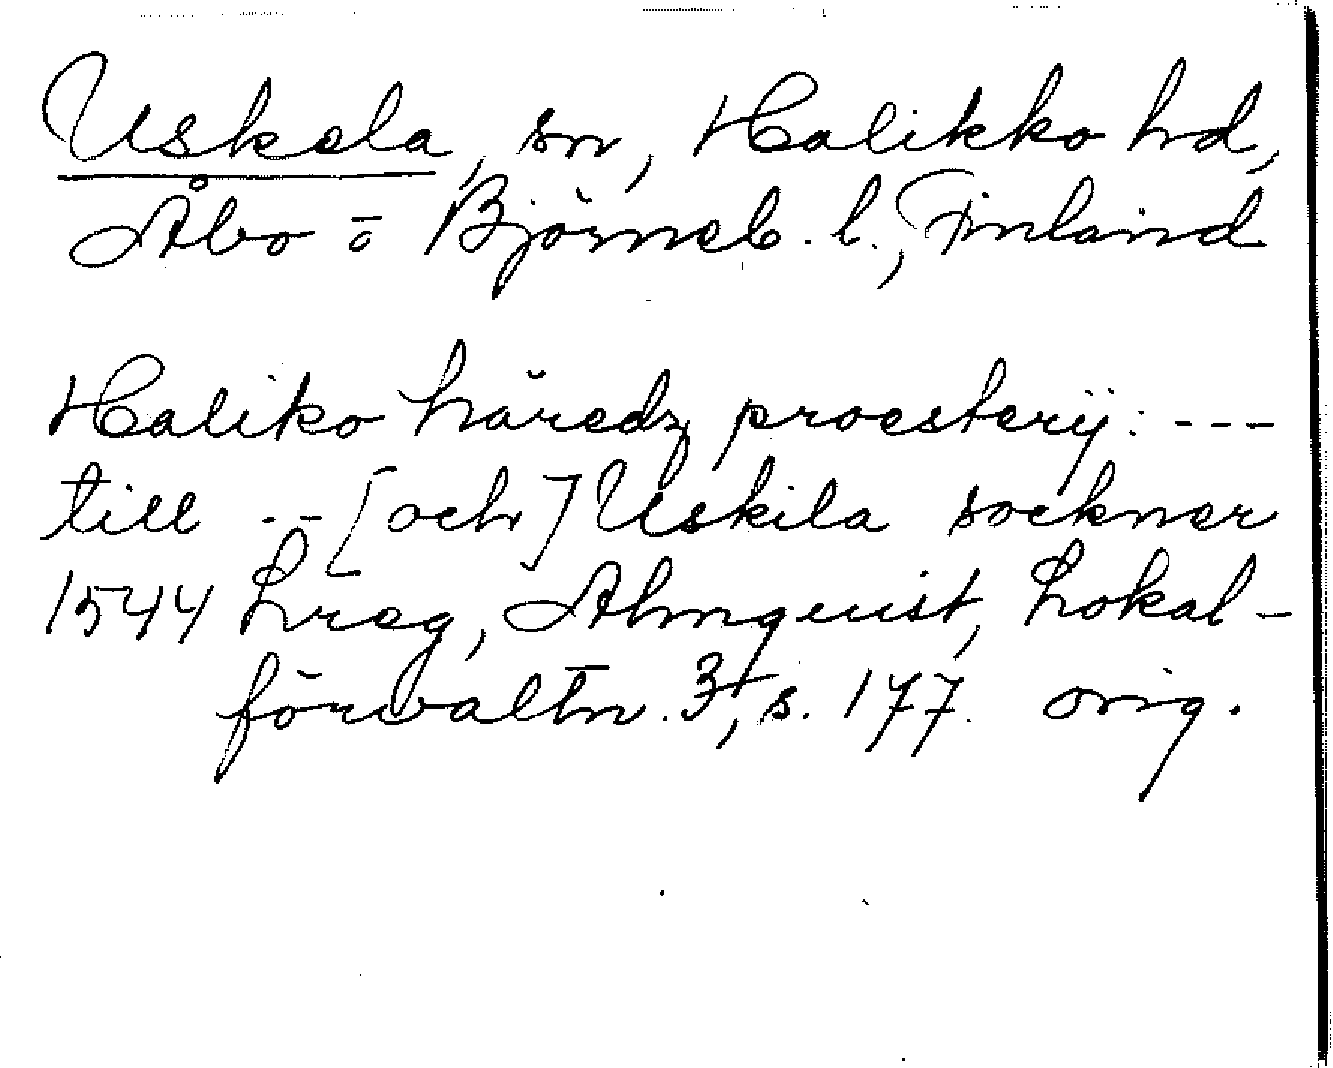 Uskela, sn, Halikko hd,
Åbo o Björneb. l., Finland
Haliko häredz proesterij: ---
till -- [och] Uskila sockner
1544 Lreg, Almquist, Lokal-
förvaltn. 3, s. 177. orig.